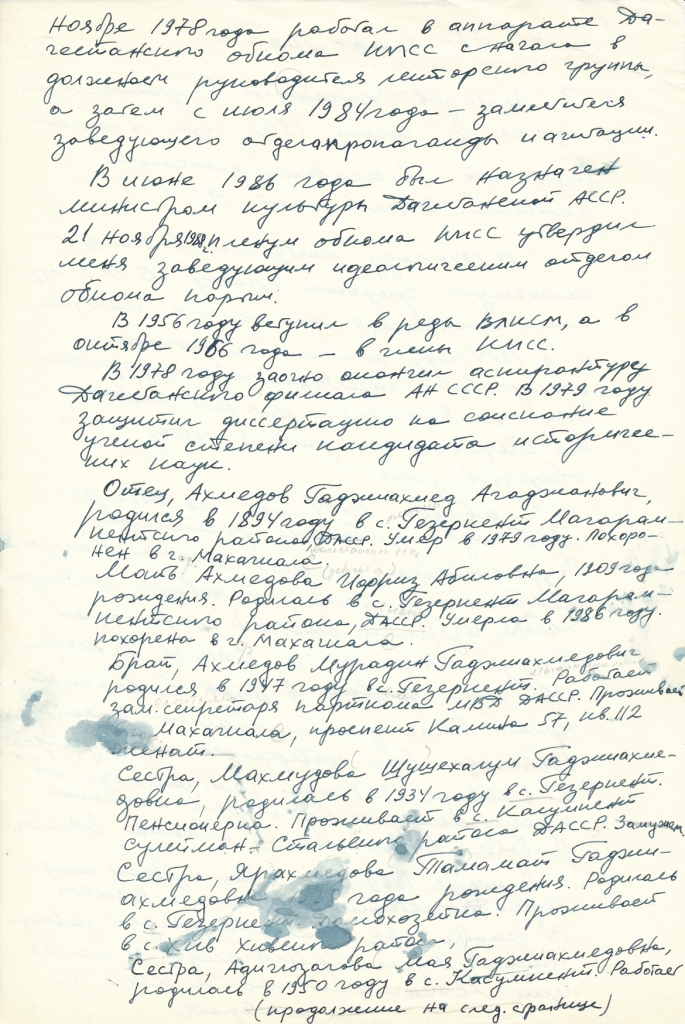 Ноябре 1978 года работал в аппарате Да-
гестанского обкома КПСС с начала в
должности руководителя лекторского группы,
а затем с июля 1984 года – заместителя
заведующего отдела пропаганды и агитации.
В июне 1986 года был назначен
министром культуры Дагестанской АССР.
21 ноября пленум обкома КПСС утвердил
меня заведующим идеологическим отделом
обкома партии.
В 1956 году вступил в ряды ВЛКСМ, а в
октябре 1966 года – в члены КПСС.
В 1978 году заочно окончил аспирантуру
Дагестанского филиала АН СССР. В 1979 году
защитил диссертацию на соискание
ученой степени кандидата историчес-
ких наук.
Отец, Ахмедов Гаджиахмед Агаджанович,
родился в 1894 году в с. Гезеркент Магарам-
кентского района ДАССР. Умер в 1979 году. Похоро-
нен в г. Махачкала.
Мать Ахмедова Абиловна, 1909 года
рождения. Родилась в с. Гезеркент Магарам-
кентского района, ДАССР. Умерла в 1986 году.
похорена в г. Махачкала.
Брат, Ахмедов Мурадин Гаджиахмедович
родился в 1947 году в с. Гезеркент. Работает
зам. секретаря парткома МВД ДАССР. Проживает
Махачкала, проспект Калинина 57, кв. 112
женат.
Сестра, Махмудова Шушеханум Гаджиахме-
довна, родилась в 1934 году в с. Гезеркент.
Пенсионерка. Проживает в с. Касумкент
Сулейман-Стальского района ДАССР. Замужем.
Сестра, Ярахмедова Тамамат Гаджи-
ахмедовна года рождения. Родилась
в с. Гезеркент домохозяйка. Проживает
в с. Хив Хивского района,
Сестра, Адигюзалова Мая Гаджиахмедовна,
родилась в 1950 году в с. Касумкент. Работает
(продолжение на след. странице)